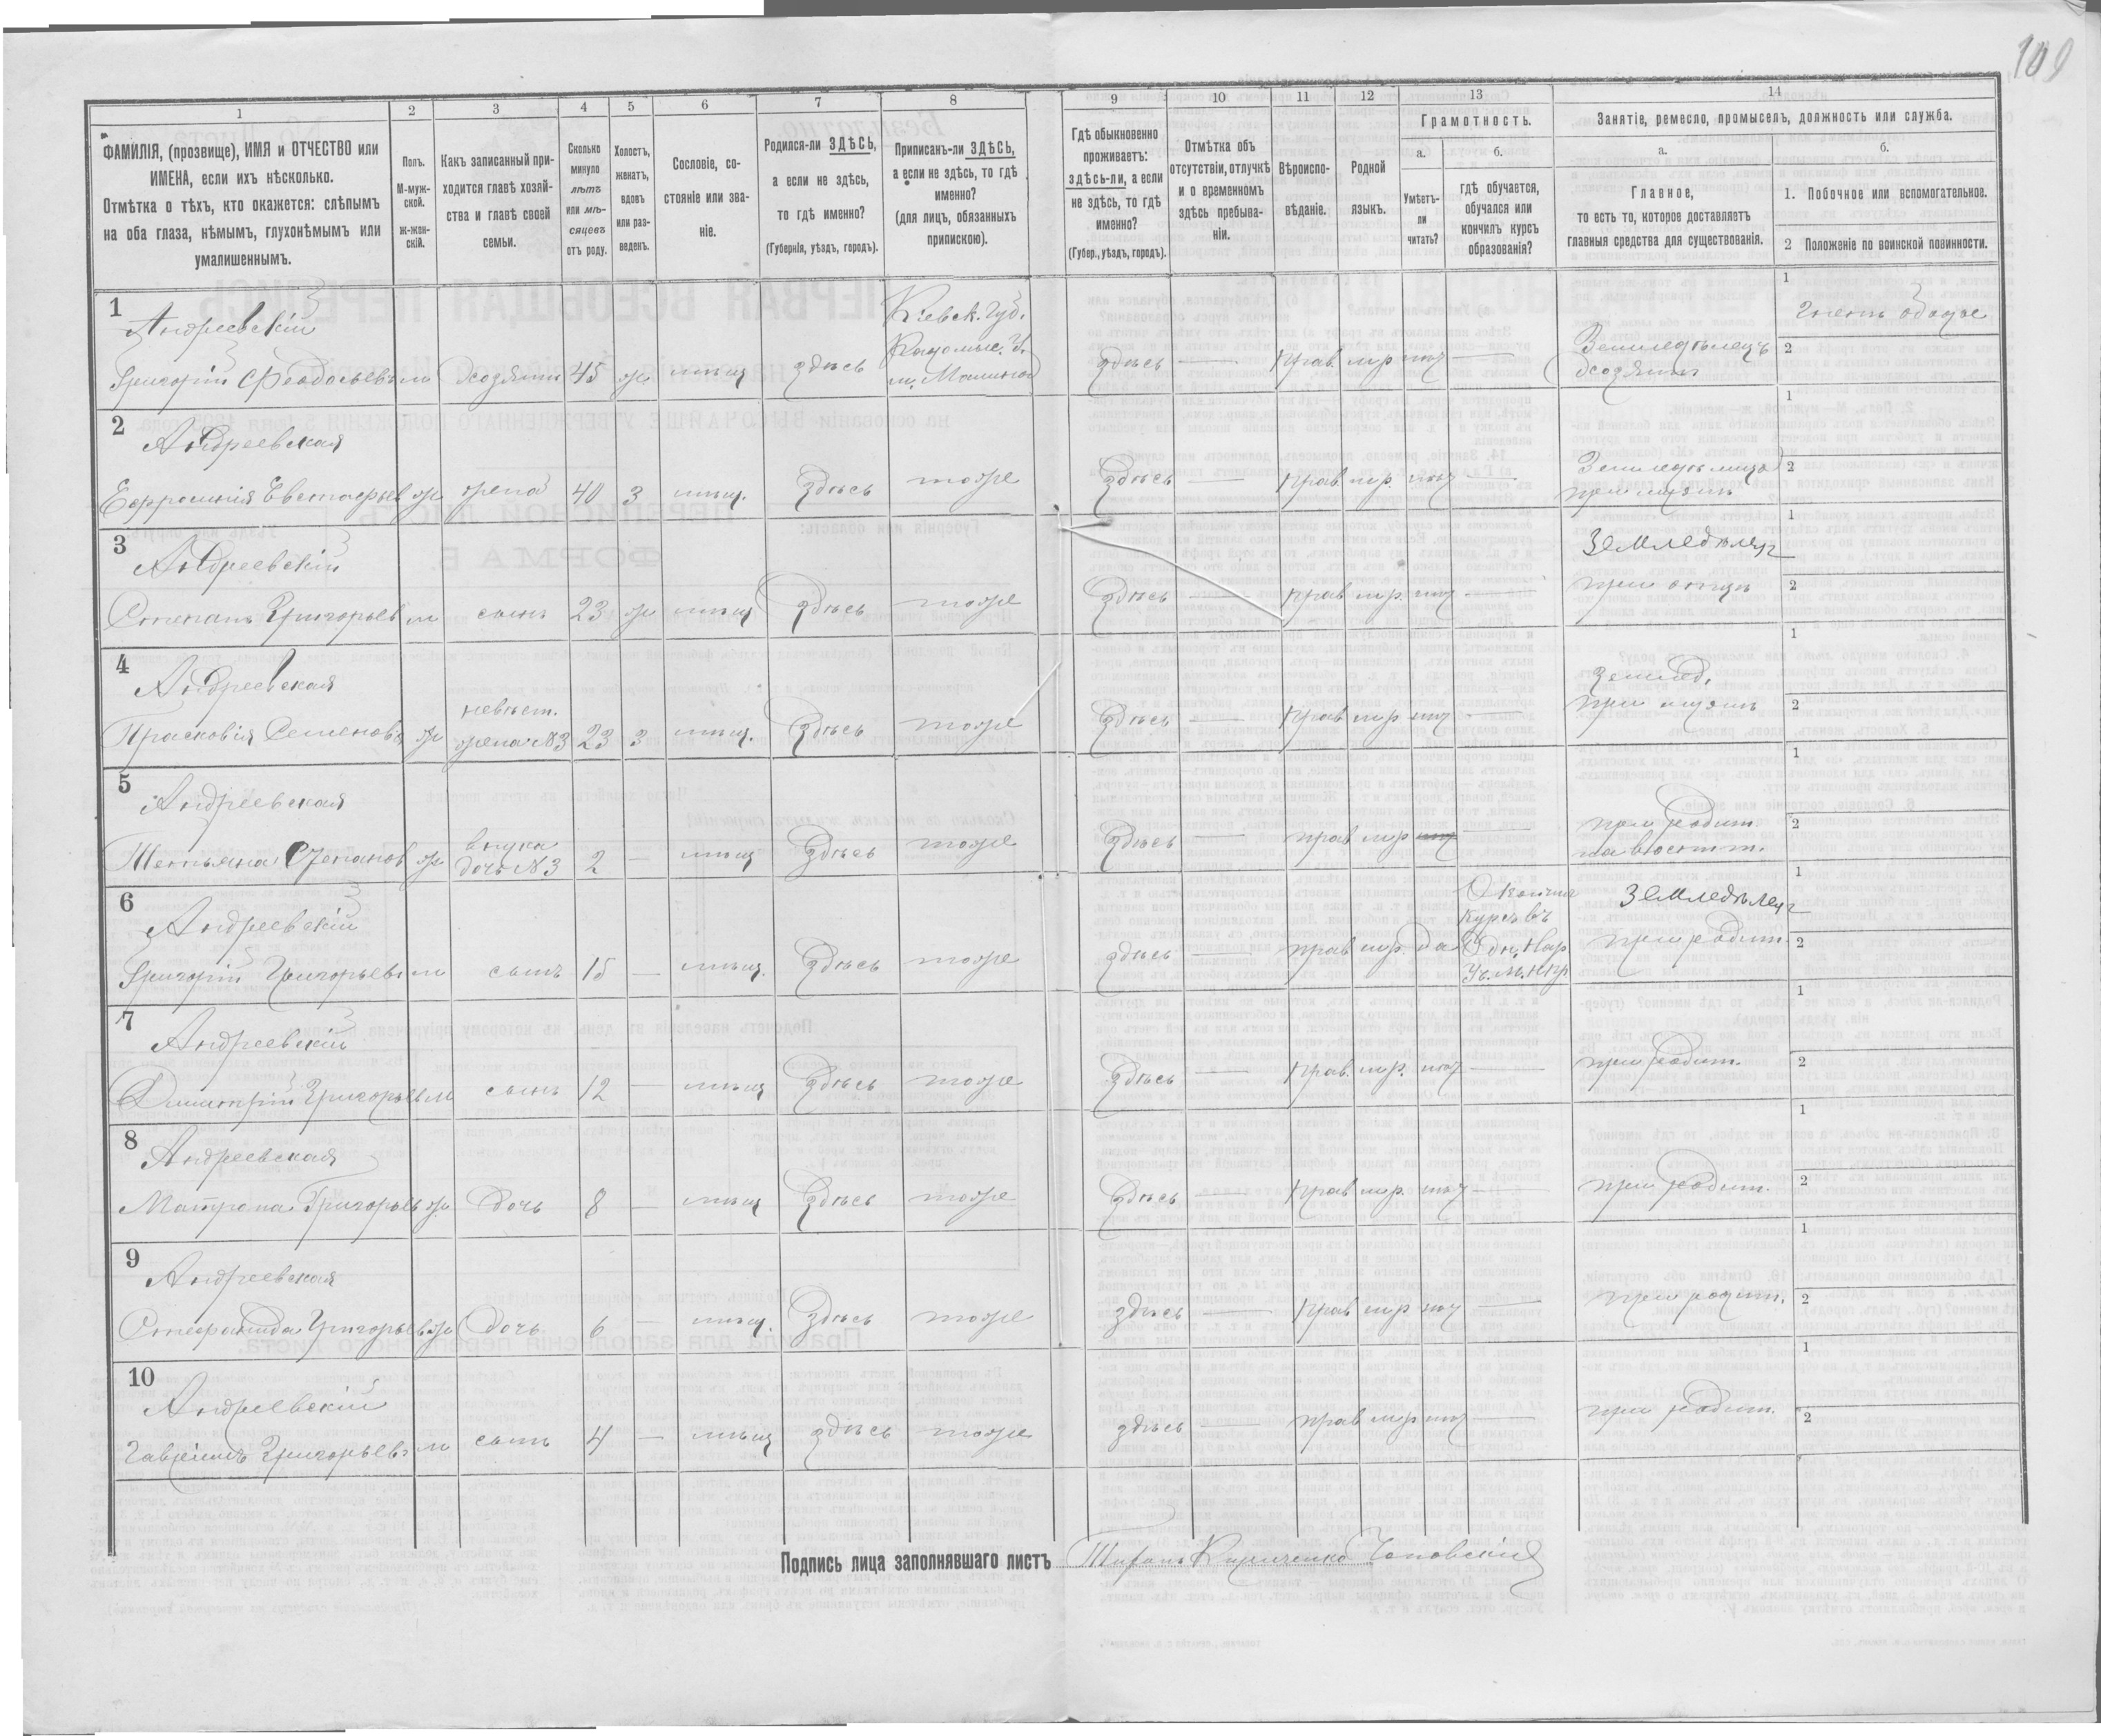 109
1
2
3
4
5
6
7
8
9
10
11
12
13
14
ФАМИЛІЯ, (прозвище), ИМЯ и ОТЧЕСТВО или
ИМЕНА, если ихъ нѣсколько.
Отмѣтка о тѣхъ, кто окажется: слѣпымъ
на оба глаза, нѣмымъ, глухонѣмымъ или
умалишеннымъ.
Полъ.
М-муж-
ской.
ж-жен-
скій.
Какъ записанный при-
ходится главѣ хозяй-
ства и главѣ своей
семьи.
Сколько
минуло
лѣтъ
или мѣ-
сяцевъ
отъ роду.
Холостъ,
женатъ,
вдовъ
или раз-
веденъ.
Сословіе, со-
стояніе или зва-
ніе.
Родился-ли ЗДѢСЬ,
а если не здѣсь,
то гдѣ именно?
(Губернія, уѣздъ, городъ).
Приписанъ-ли ЗДѢСЬ,
а если не здѣсь, то гдѣ
именно?
(для лицъ, обязанныхъ
припискою).
Гдѣ обыкновенно
проживаетъ:
здѣсь-ли, а если
не здѣсь, то гдѣ
именно?
(Губер., уѣздъ, городъ).
Отмѣтка объ
отсутствіи, отлучкѣ
и о временномъ
здѣсь пребыва-
ніи.
Вѣроиспо-
вѣданіе.
Родной
языкъ.
Грамотность.
а.
Умѣетъ-
ли
читать?
б.
гдѣ обучается,
обучался или
кончилъ курсъ
образованія?
Занятіе, ремесло, промыселъ, должность или служба.
а.
Главное,
то есть то, которое доставляетъ
главныя средства для существованія.
б.
1. Побочное или вспомогательное.
2 Положеніе по воинской повинности.
1
Андреевскій
Григорій Феодосьевъ м Хозяинъ 45 ж мѣщ здѣсь
Кіевск. Губ.
Радомыс. У.
м. Малинъ
здѣсь — прав. мр нѣт —
Земледѣлецъ
Хозяинъ
1
2
2
Андреевская
Евфросинія Евстафьев ж жена 40 З мѣщ. Здѣсь тоже Здѣсь — прав мр. нѣт —
при мужѣ
1
2
3
Андреевскій
Степанъ Григорьев м сынъ 23 ж мѣщ Здѣсь тоже Здѣсь — прав мр. нѣт —
Земледѣлец
при отцѣ
1
2
4
Андреевская
Прасковія Семенова ж
невѣст.
жена №3
23 З мѣщ. Здѣсь тоже Здѣсь — прав мр нѣт —
Землед.
при мужѣ
1
2
5
Андреевская
Тетьяна Степанов ж
внука
дочь №3
2 — мѣщ Здѣсь тоже Здѣсь — прав мр нѣт
при родит
1
2
6
Андреевскій
Григорій Григорьевъ м сынъ 15 — мѣщ. Здѣсь тоже здѣсь — прав мр. да
курсъ въ
Земледѣлец
при родит.
1
2
7
Андреевскій
Димитрій Григорьев м сынъ 12 — мѣщ Здѣсь тоже Здѣсь — прав. мр. нѣт —
при родит.
1
2
8
Андреевская
Матрона Григорьев ж Дочь 8 — мѣщ Здѣсь тоже Здѣсь — прав мр. нѣт —
при родит.
1
2
9
Андреевская
Стефанида Григорьев ж Дочь 6 — мѣщ. Здѣсь тоже здѣсь — прав мр нѣт —
при родит.
1
2
10
Андреевскій
Гавріилъ Григорьевъ м сынъ 4 — мѣщ здѣсь тоже здѣсь — прав мр нѣт —
при родит.
1
2
Подпись лица заполнявшаго листъ Кириченко